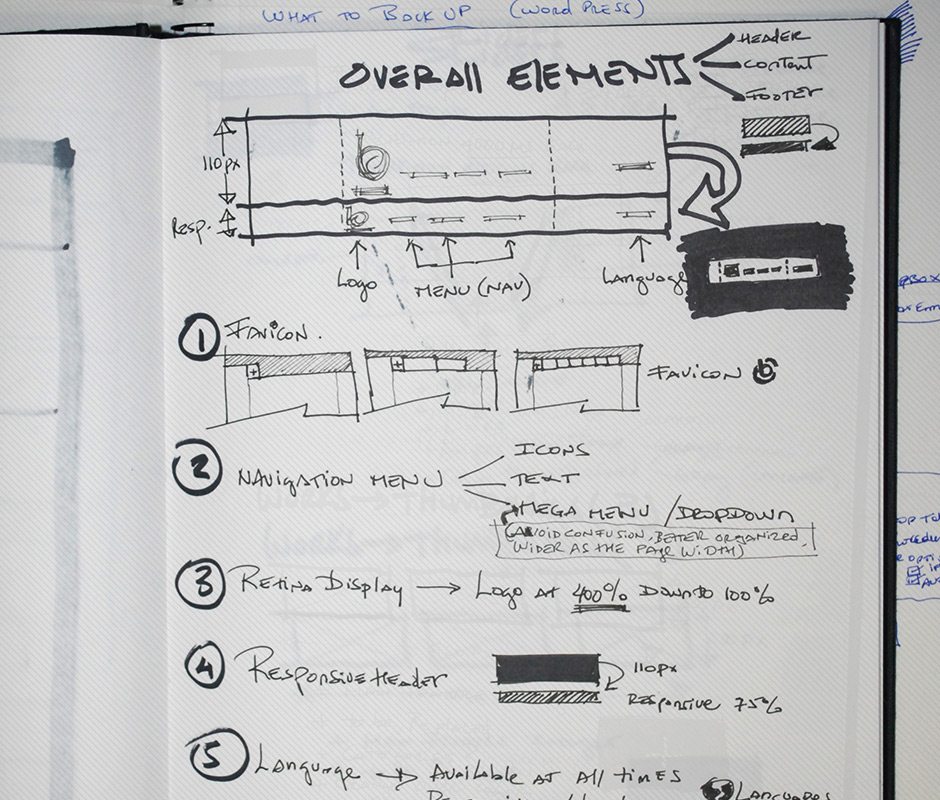 WHAT TO BACK UP (WORD PRESS)
OVERALL ELEMENTS
HEADER
CONTENT
FOOTER
110px
Resp.
Logo
MENU (NAV)
Language
1 FAVICON.
FAVICON b
2 NAVIGATION MENU
ICONS
TEXT
MEGA MENU / DROPDOWN
(AVOID CONFUSION, BETER ORGANIZED,
WIDER AS THE PAGE WIDTH)
3 RETINA DISPLAY → LOGO AT 400% DOWN TO 100%
4 RESPONSIVE HEADER
110px
RESPONSIVE 75%
5 LANGUAGE → AVAILABLE AT ALL TIMES
LANGUAGES